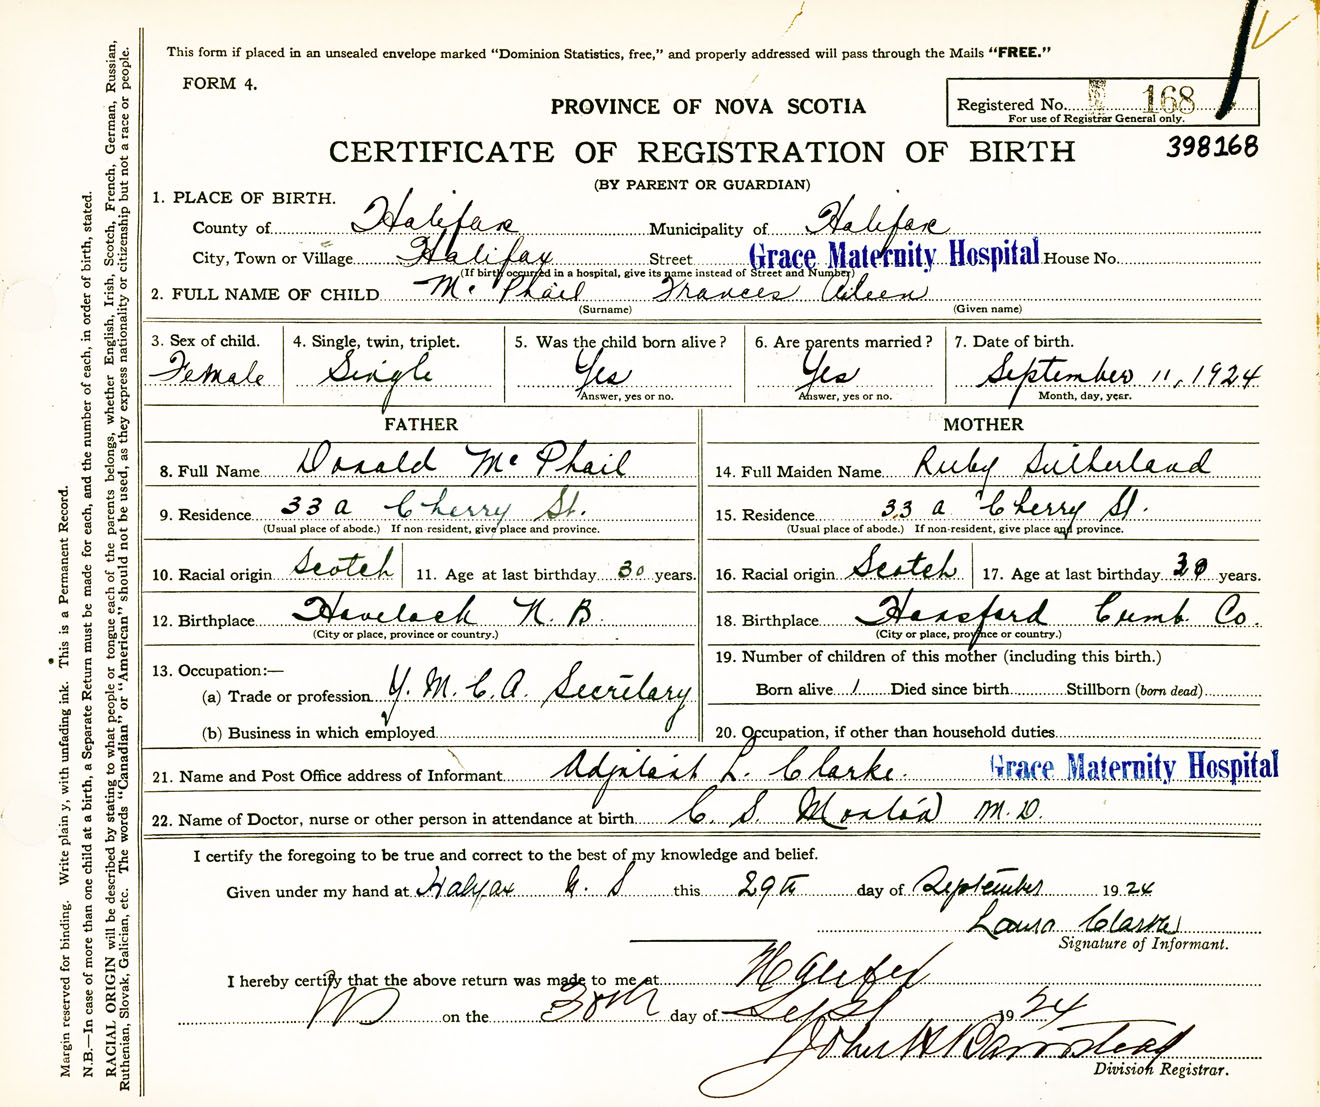 This form if placed in an unsealed envelope marked "Dominion Statistics, free," and properly addressed will pass through the Mails "FREE."
FORM 4.
PROVINCE OF NOVA SCOTIA
Registered No. 168
For use of Registrar General only.
CERTIFICATE OF REGISTRATION OF BIRTH
398168
(BY PARENT OR GUARDIAN)
1. PLACE OF BIRTH.
County of Halifax Municipality of Halifax
City, Town or Village Halifax Street Grace Maternity Hospital House No.
(If birth occurred in a hospital, give its name instead of Street and Number)
2. FULL NAME OF CHILD McPhail Frances Aileen
(Surname) (Given name)
3. Sex of child. 4. Single, twin, triplet. 5. Was the child born alive? 6. Are parents married? 7. Date of birth.
Female Single Yes Yes September 11, 1924
Answer, yes or no. Answer, yes or no. Month, day, year.
FATHER MOTHER
8. Full Name Donald McPhail 14. Full Maiden Name Ruby Sutherland
9. Residence 33 a Cherry St. 15. Residence 33 a Cherry St.
(Usual place of abode.) If non-resident, give place and province. (Usual place of abode.) If non-resident, give place and province.
10. Racial origin Scotch 11. Age at last birthday 30 years. 16. Racial origin Scotch 17. Age at last birthday 30 years.
12. Birthplace Havelock N. B. 18. Birthplace Hansford Cumb. Co.
(City or place, province or country.) (City or place, province or country.)
13. Occupation:— 19. Number of children of this mother (including this birth.)
(a) Trade or profession Y. M. C. A. Secretary Born alive 1 Died since birth Stillborn (born dead)
(b) Business in which employed 20. Occupation, if other than household duties
21. Name and Post Office address of Informant Adjutant L. Clarke. Grace Maternity Hospital
22. Name of Doctor, nurse or other person in attendance at birth C. S. M.D.
I certify the foregoing to be true and correct to the best of my knowledge and belief.
Given under my hand at Halifax N. S this 29th day of September 1924
Laura Clarke
Signature of Informant.
I hereby certify that the above return was made to me at Halifax
on the 30th day of Sept 1924
John H Barnstead
Division Registrar.
Margin reserved for binding. Write plainly, with unfading ink. This is a Permanent Record.
N.B.—In case of more than one child at a birth, a Separate Return must be made for each, and the number of each, in order of birth, stated.
RACIAL ORIGIN will be described by stating to what people or tongue each of the parents belongs, whether English, Irish, Scotch, French, German, Russian,
Ruthenian, Slovak, Galician, etc. The words "Canadian" or "American" should not be used, as they express nationality or citizenship but not a race or people.